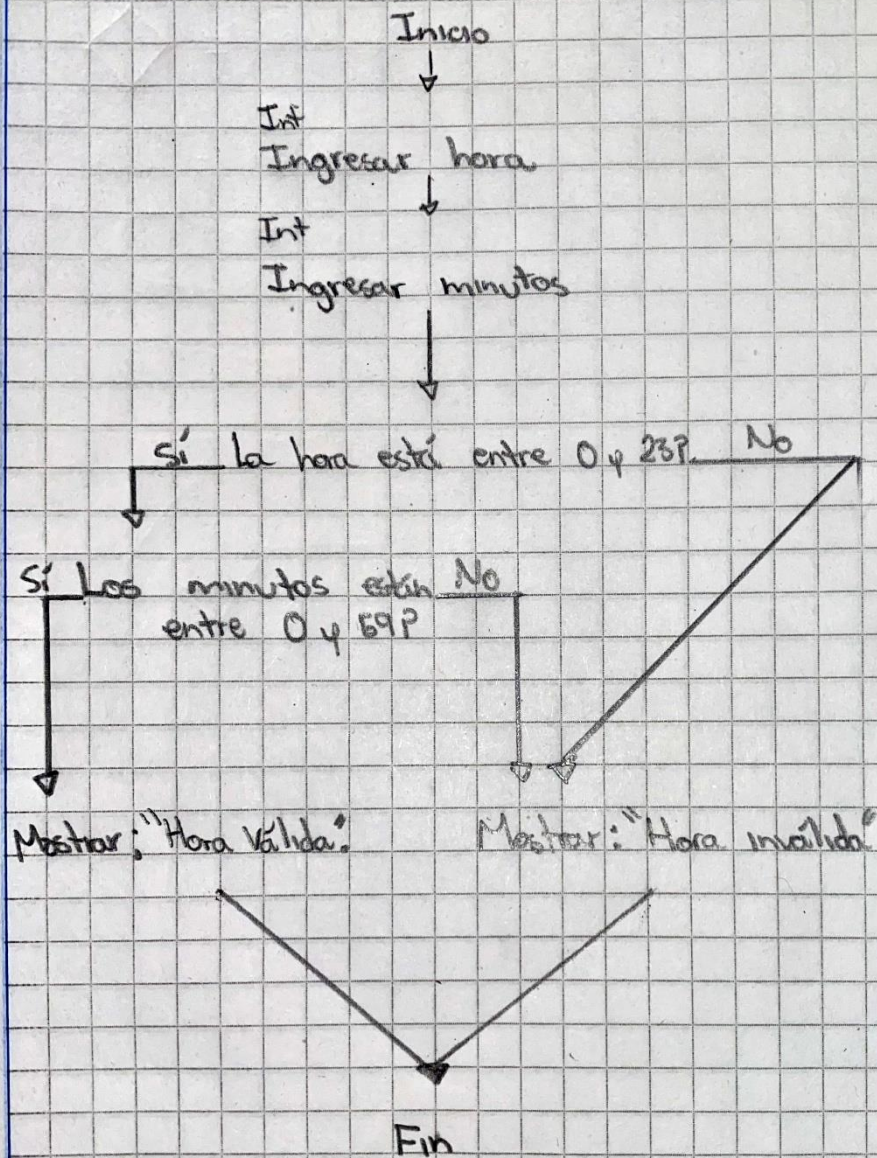 Inicio
Int
Ingresar hora
Int
Ingresar minutos
Sí La hora está entre 0 y 23? No
Sí Los minutos están No
entre 0 y 59?
Mostrar: "Hora Válida".
Mostrar: "Hora inválida"
Fin